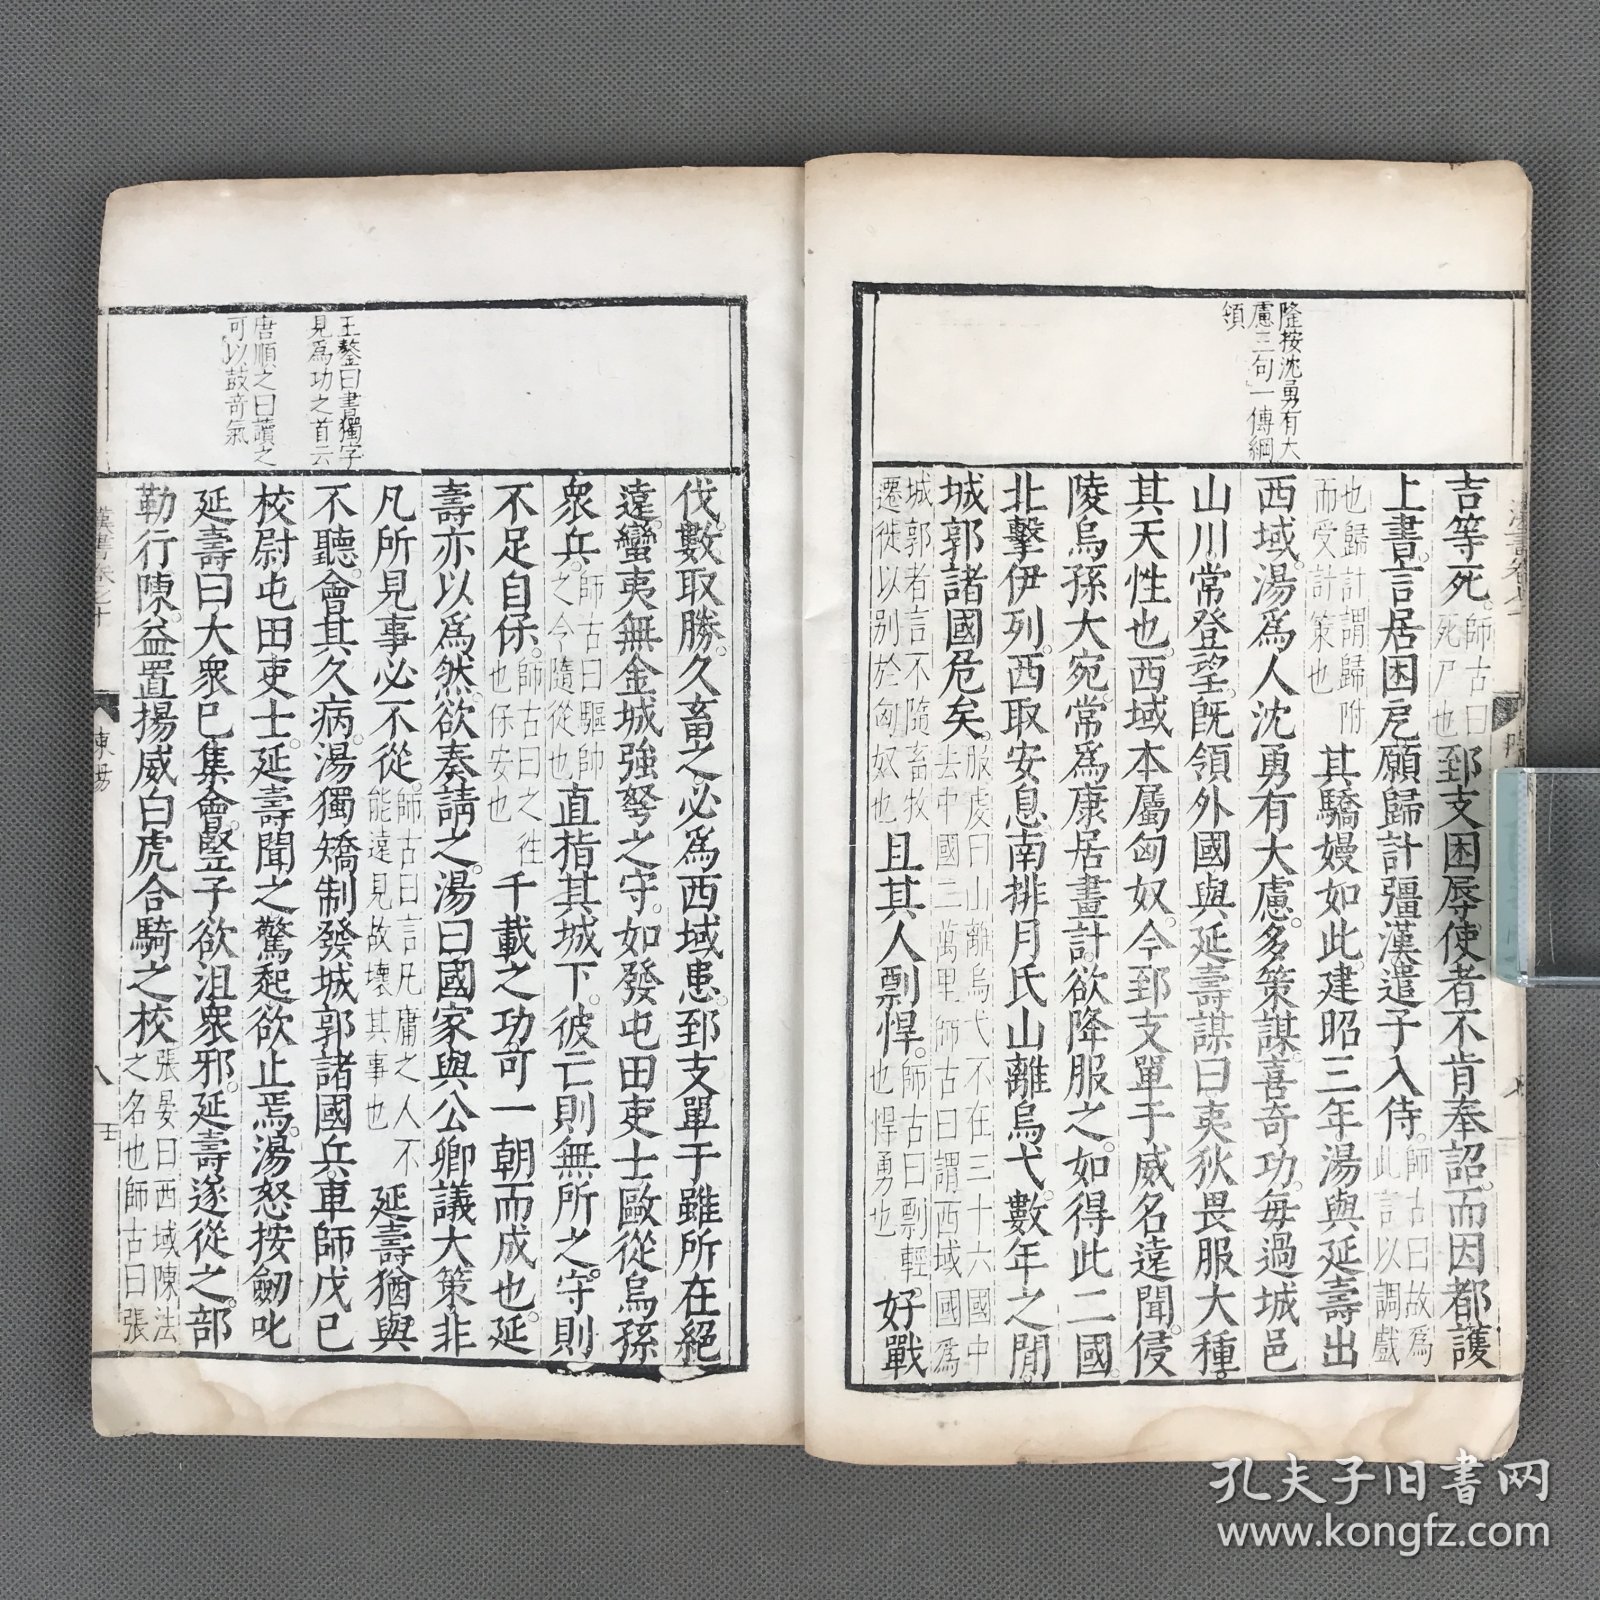 隆按沈勇有大
慮三句一傳綱
領
吉等死。師古曰死尸也郅支困辱使者不肯奉詔。而因都護
上書。言居困戹願歸計彊漢遣子入侍。師古曰故爲此言以調戲
也歸計謂歸附而受計策也其驕嫚如此。建昭三年湯與延壽出
西域。湯爲人沈勇有大慮。多策謀。喜奇功。每過城邑
山川。常登望。旣領外國與延壽謀曰夷狄畏服大種。
其天性也。西域本屬匈奴。今郅支單于威名遠聞。侵
陵烏孫大宛。常爲康居畫計。欲降服之。如得此二國。
北擊伊列。西取安息南排月氏山離烏弋。數年之閒。
城郭諸國危矣。服虔曰山離烏弋不在三十六國中去中國二萬里師古曰謂西域國爲
城郭者言不隨畜牧遷徙以别於匈奴也且其人剽悍。師古曰剽輕也悍勇也好戰
王鏊曰書獨字
見爲功之首云
唐順之曰讀之
可以鼓奇氣
伐。數取勝。久畜之。必爲西域患。郅支單于雖所在絕
遠。蠻夷無金城強弩之守。如發屯田吏士歐從烏孫
衆兵。師古曰驅帥之令隨從也直指其城下。彼亡則無所之。守則
不足自保。師古曰之往也保安也千載之功可一朝而成也。延
壽亦以爲然。欲奏請之。湯曰國家與公卿議大策非
凡所見事必不從。師古曰言凡庸之人不能遠見故壞其事也延壽猶與
不聽。會其久病。湯獨矯制發城郭諸國兵。車師戊己
校尉屯田吏士。延壽聞之驚起欲止焉。湯怒按劒叱
延壽曰大衆已集會。豎子欲沮衆邪。延壽遂從之。部
勒行陳。益置揚威白虎合騎之校張晏曰西域陳法之名也師古曰張
漢書卷七十
陳
八